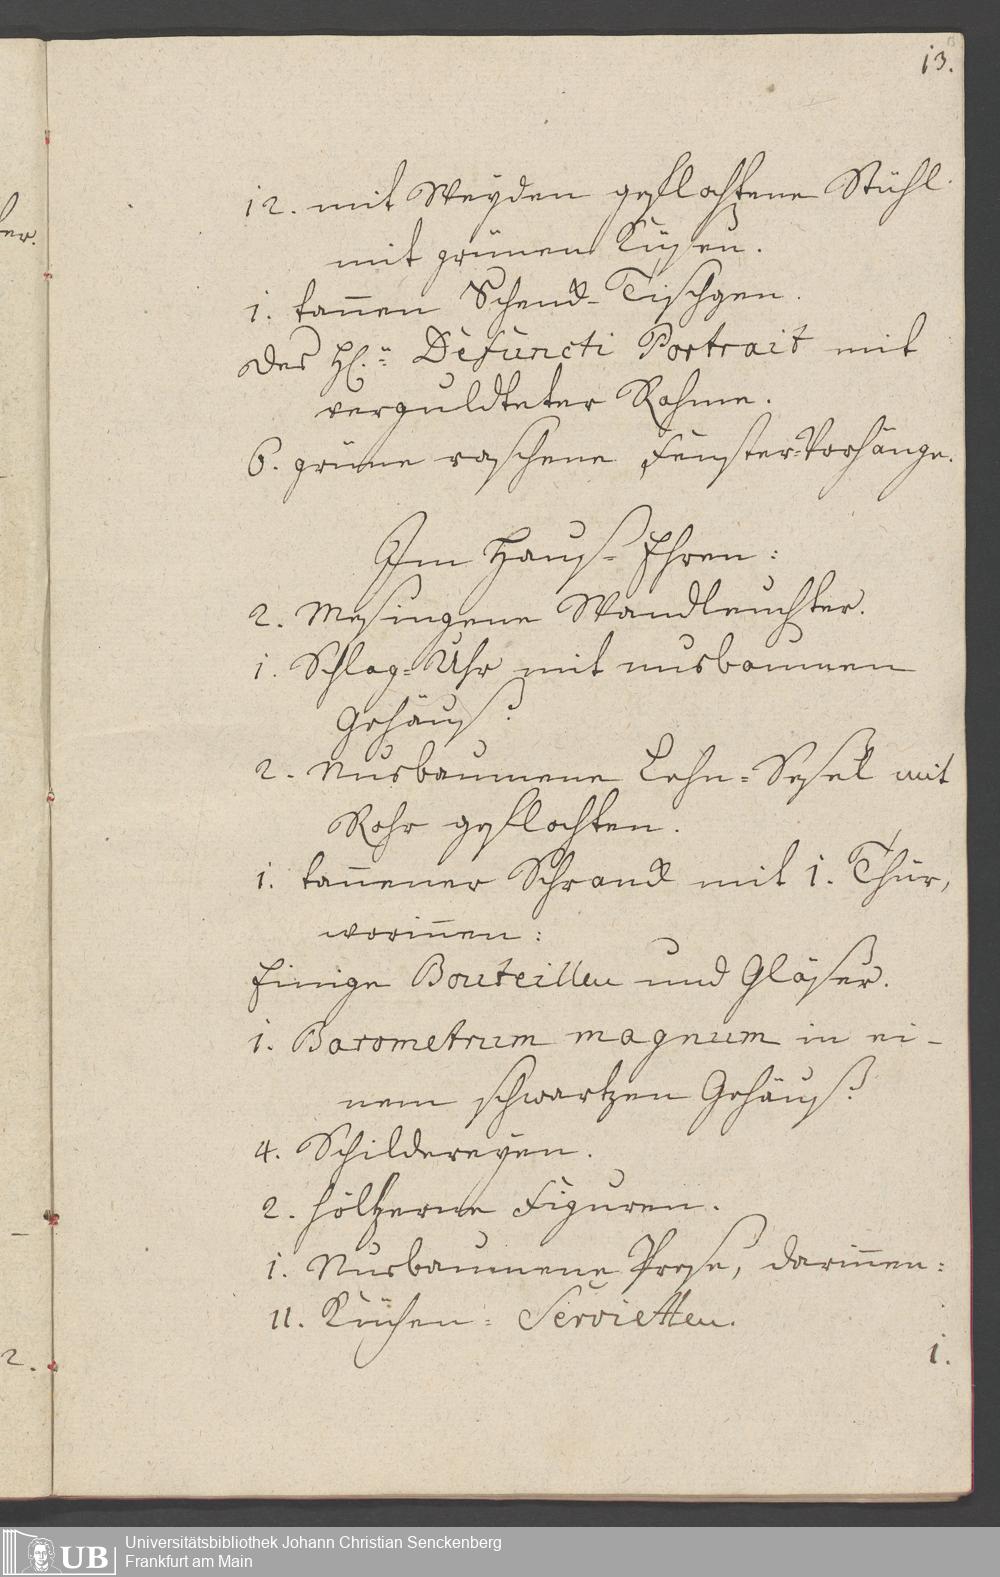 13.
12. mit Weyden geflochtene Stühl
mit grünen Küßen.
1. tañen Schenck-Tischgen.
des H. Defuncti Portrait mit
verguldteter Rahme.
6. grüne raschene Fenster-Vorhänge.
Im Hauß-Ehren:
2. Meßingene Wandleuchter.
1. Schlag-Uhr mit nusbaumen
Gehäuß.
2. Nusbaumene Lehn-Seßel mit
Rohr geflochten.
1. tañener Schranck mit 1. Thür,
woriñen:
Einige Bouteillen und Gläser.
1. Barometrum magnum in ei-
nem schwartzen Gehäuß.
4. Schildereyen.
2. höltzerne Figuren.
1. Nusbaumene Preße, dariñen:
11. Küchen-Servietten.
1.
er.
2.
UB
Universitätsbibliothek Johann Christian Senckenberg
Frankfurt am Main